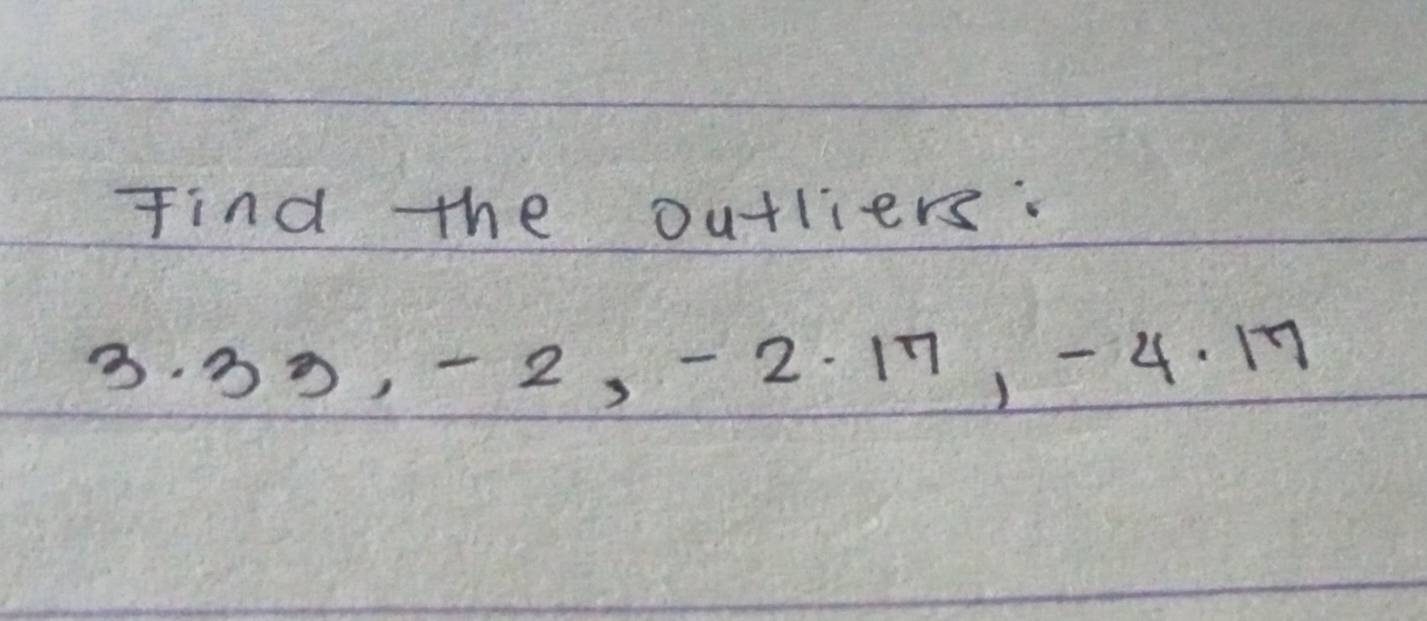 Find the outliers:
3.33, -2, -2.17, -4.17